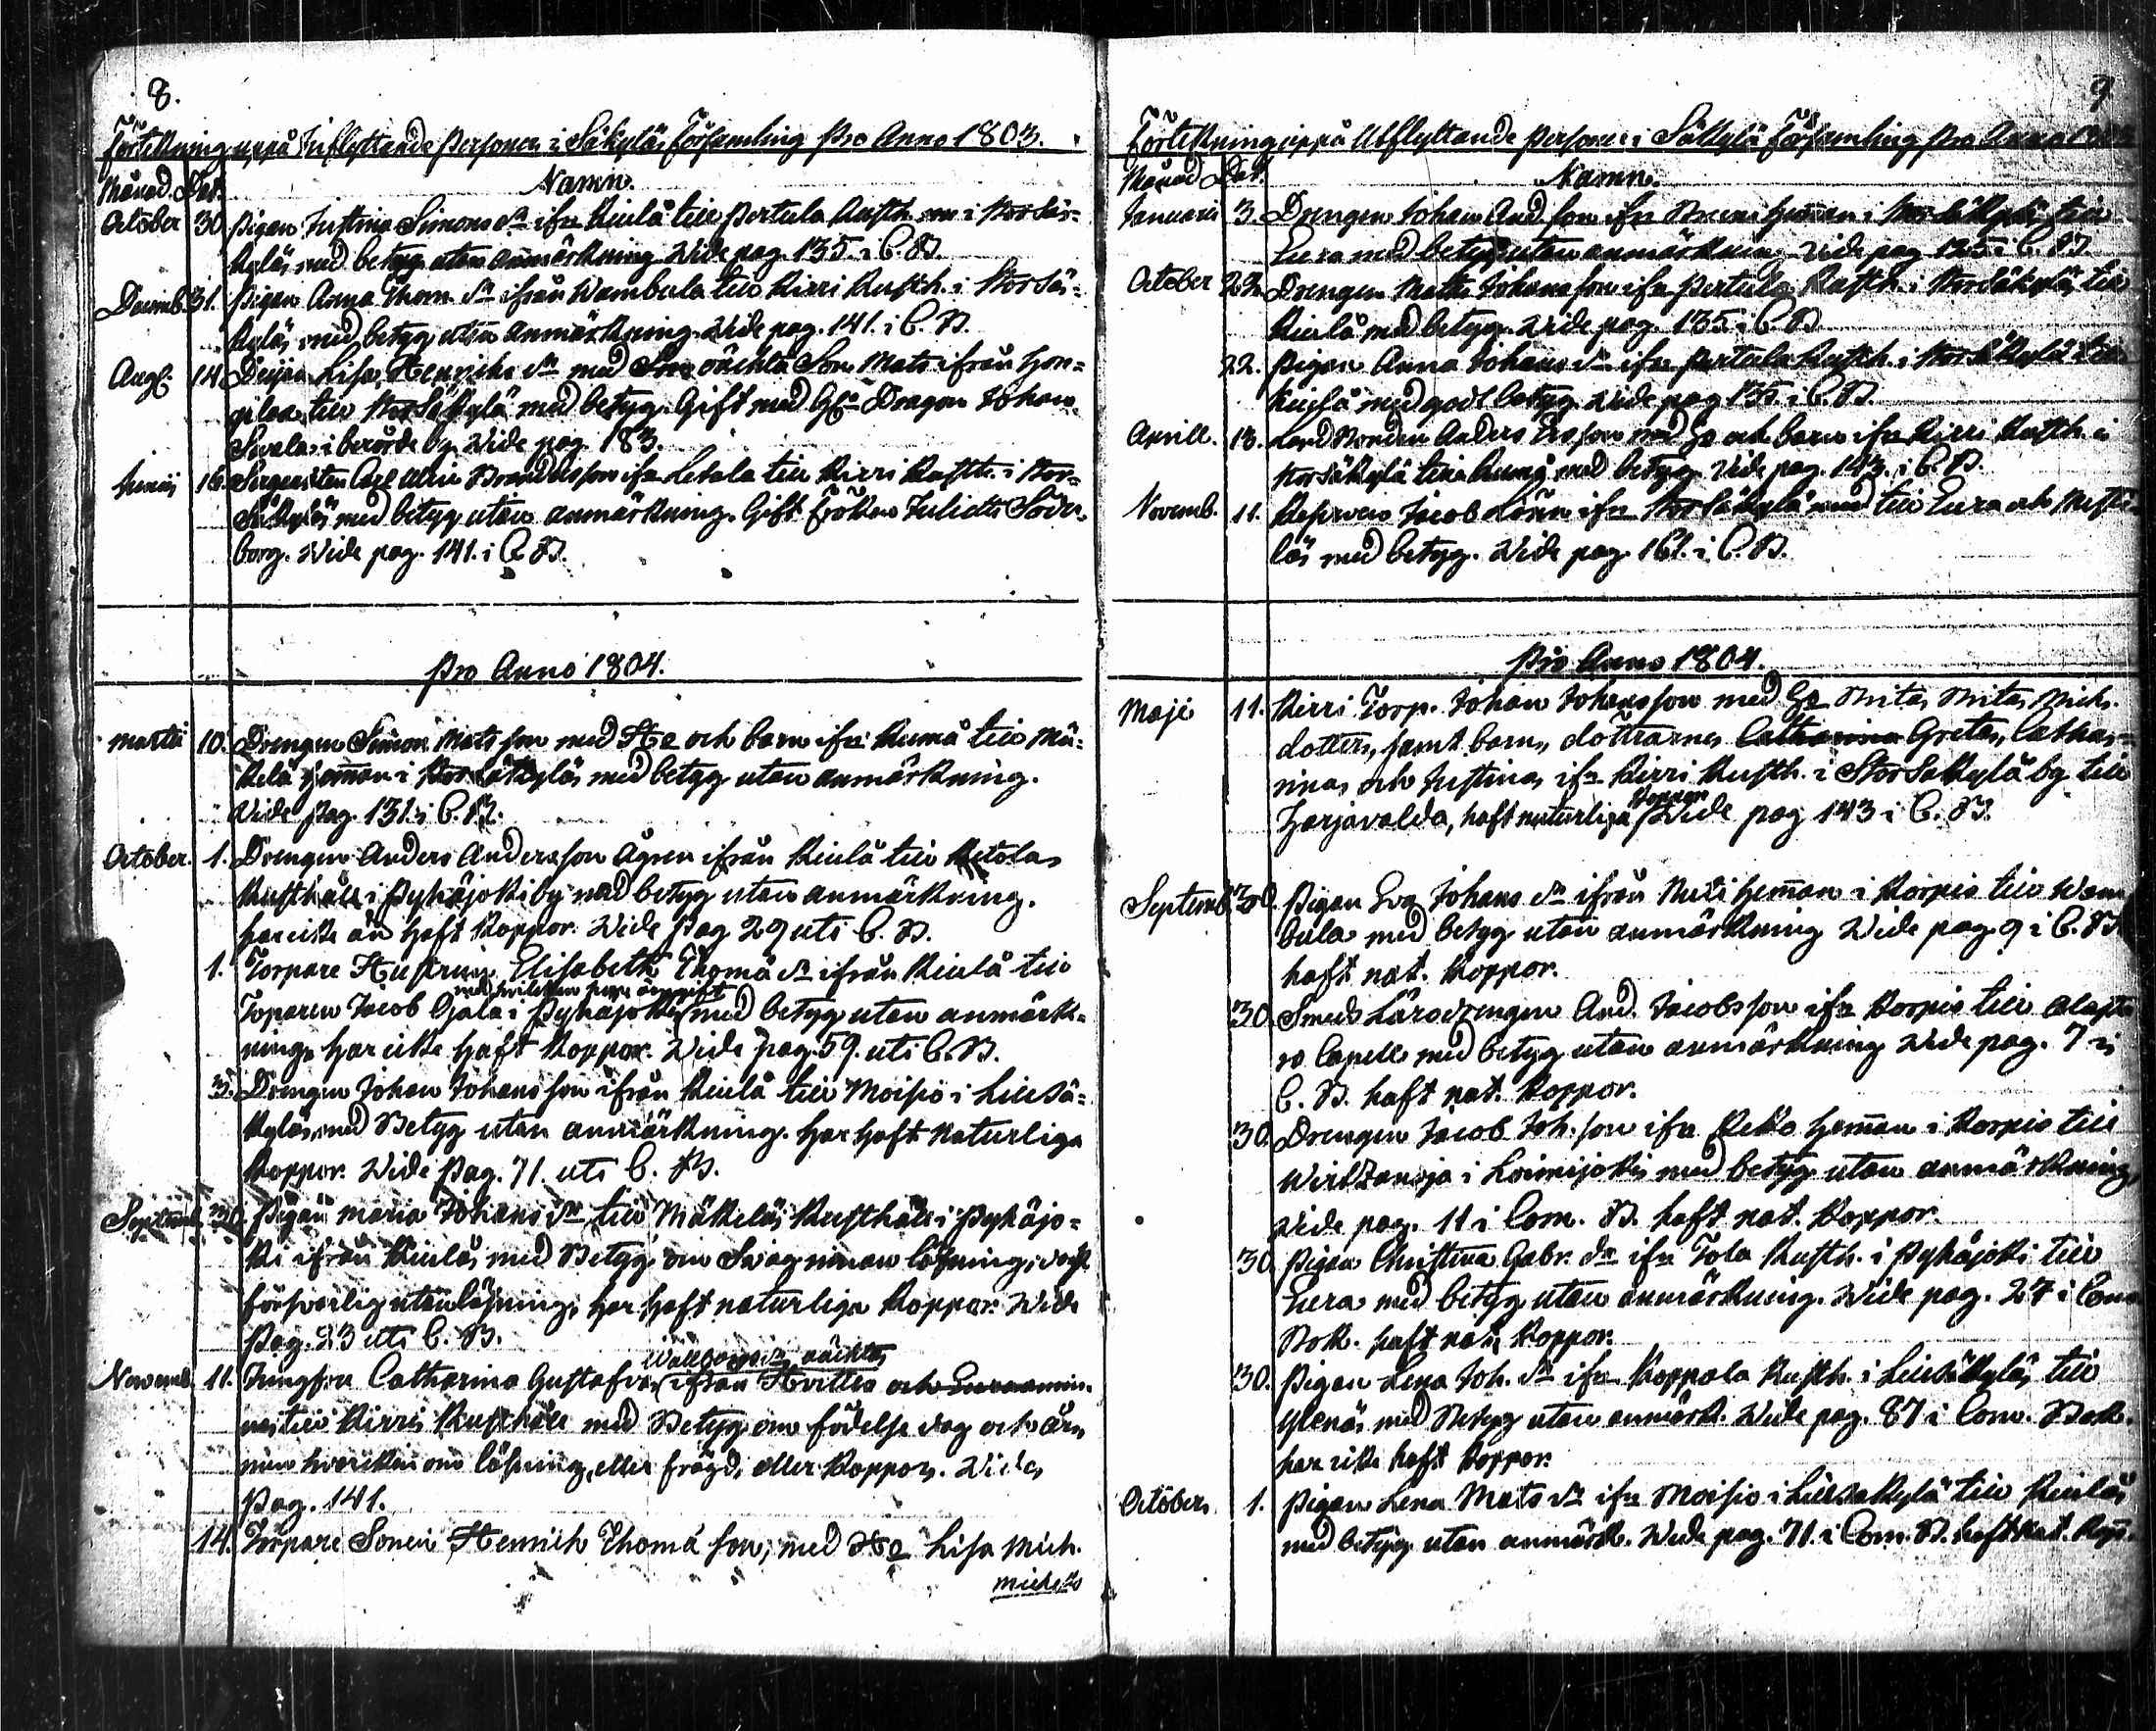 8.
Förtekning uppå Inflyttande Personer i Säkylä Församling Pro Anno 1803.
Månad. Dat. Namn.
October 30. Pigan Justina Simons dr ifrn Kiulå till Pertula Rusth. i Stor Sä-
kylä, med betyg utan anmärkning. Wide pag. 135. i C. B.
Decemb. 31. Pigan Anna Thom. dr ifrån Wambula till Kirri Rusth. i Stor Sä-
kylä med betyg utan anmärkning. Wide pag. 141. i C. B.
Aug. 14. Deijan Lisa Henrichs dr med Son oächta Son Mats ifrån Hon-
gilax till Stor Säkylä med betyg. Gift med Dragon Johan
Swala i berörde by. Wide pag. 183.
Junii 16. Sergeanten Carl Ulric ifrn Letala till Kirri Rusth. i Stor-
Säkylä med betyg utan anmärkning. Gift Fröken Juliette Söder-
borg. Wide pag. 141. i C. B.
Pro Anno 1804.
Martii 10. Drengen Simon Mats son med Ho och barn ifrn Eumå till Mä-
kelä Heman i Stor Säkylä, med betyg utan anmärkning.
Wide Pag. 131. i C. B.
October. 1. Drengen Anders Andersson Ågren ifrån Kiulå till Ketola
Rusthåll i Pyhäjoki by med betyg utan anmärkning.
har icke än haft Koppor. Wide Pag 29 uti C. B.
1. Torpare Hustrun Elisabeth Thomä dr ifrån Kiulå till
Toparen Jacob Ojala i Pyhäjoki med betyg utan anmärk-
ning, har icke haft Koppor. Wide pag. 59. uti C. B.
3. Drengen Johan Johans son ifrån Kiulå till Moisio i Lill Sä-
kylä, med Betyg utan anmärkning. har haft Naturliga
Koppor. Wide Pag. 71. uti C. B.
Septemb. Pigan Maria Johans dr till Mäkelä Rusthåll i Pyhäjo-
ki ifrån Kiulå, med Betyg om Swag innan läsning, dock
försvarlig utanläsning, har haft naturliga Koppor. Wide
Pag. 23 uti C. B.
Wallborgs dr oächta
Novemb. 11. Jungfru Catharina Gustafva ifrån Hvittis och
till Kirri Rusthåll med Betyg om födelse dag och år,
men hvarken om läsning, eller frägd, eller Koppor. Wide
Pag. 141.
14. Torpare Sonen Henrich Thomä son, med Ho Lisa Mich.
Michels
9
Förtekning uppå Utflyttande Personer i Säkylä Församling Pro Anno
Månad Dat. Namn.
Januarii 3. Drengen Johan And. son ifrn Heman i Stor Säkylä till
Eura med betyg utan anmärkning. Wide pag. 125 i C. B.
October 22. Drengen Matts Johansson ifrn Pertula Rusth. i Stor Säkylä till
Kiulå med betyg. Wide pag. 135 i C. B.
22. Pigan Anna Johans dr ifrn Pertula Rusth. i Stor Säkylä till
Kiulå med godt betyg. Wide pag 135. i C. B.
Aprill. 18. Landbonden Anders Ersson med Ho och barn ifrn Kirri Rusth. i
Stor Säkylä till Eumå med betyg. Wide pag. 143. i C. B.
Novemb. 11. Jacob Lönn ifrn Stor Säkylä till Eura och
lä med betyg. Wide pag. 161. i C. B.
Pro Anno 1804.
Maji 11. Kirri Torp. Johan Johansson med Ho Mich.
dotter, samt barn, döttrarnes Catharina Greta, Catha-
rina och Justina, ifrn Kirri Rusth. i Stor Säkylä by till
Koppor
Harjavalda, haft naturliga Wide pag 143 i C. B.
Septemb. 30. Pigan Eva Johans dr ifrån Heman i Korpis till Wam
bula med betyg utan anmärkning Wide pag. 9 i C. B.
haft nat. Koppor.
30. Smeds Läro drengen And. Jacobsson ifrn Korpis till Alasta
ro Capell med betyg utan anmärkning Wide pag. 7 i
C. B. haft nat. Koppor.
30. Drengen Jacob Joh. son ifrn Heman i Korpis till
Wirtzanoja i Loimijoki med betyg utan anmärkning,
Wide pag. 11 i Com. B. haft nat. Koppor.
30. Pigan Christina Gabr. dr ifrn Tola Rusth. i Pyhäjoki till
Eura med betyg utan anmärkning. Wide pag. 27 i Com
Bok. haft nat. Koppor.
30. Pigan Lena Joh. dr ifrn Koppala Rusth. i Lill Säkylä till
Ylenäs med Betyg utan anmärk. Wide pag. 87 i Com. Bok.
har icke haft Koppor.
October. 1. Pigan Lena Mats dr ifrn Moisio i Lill Säkylä till Kiulå
med betyg utan anmärk. Wide pag. 71. i Com. B. haft nat. Kopp.